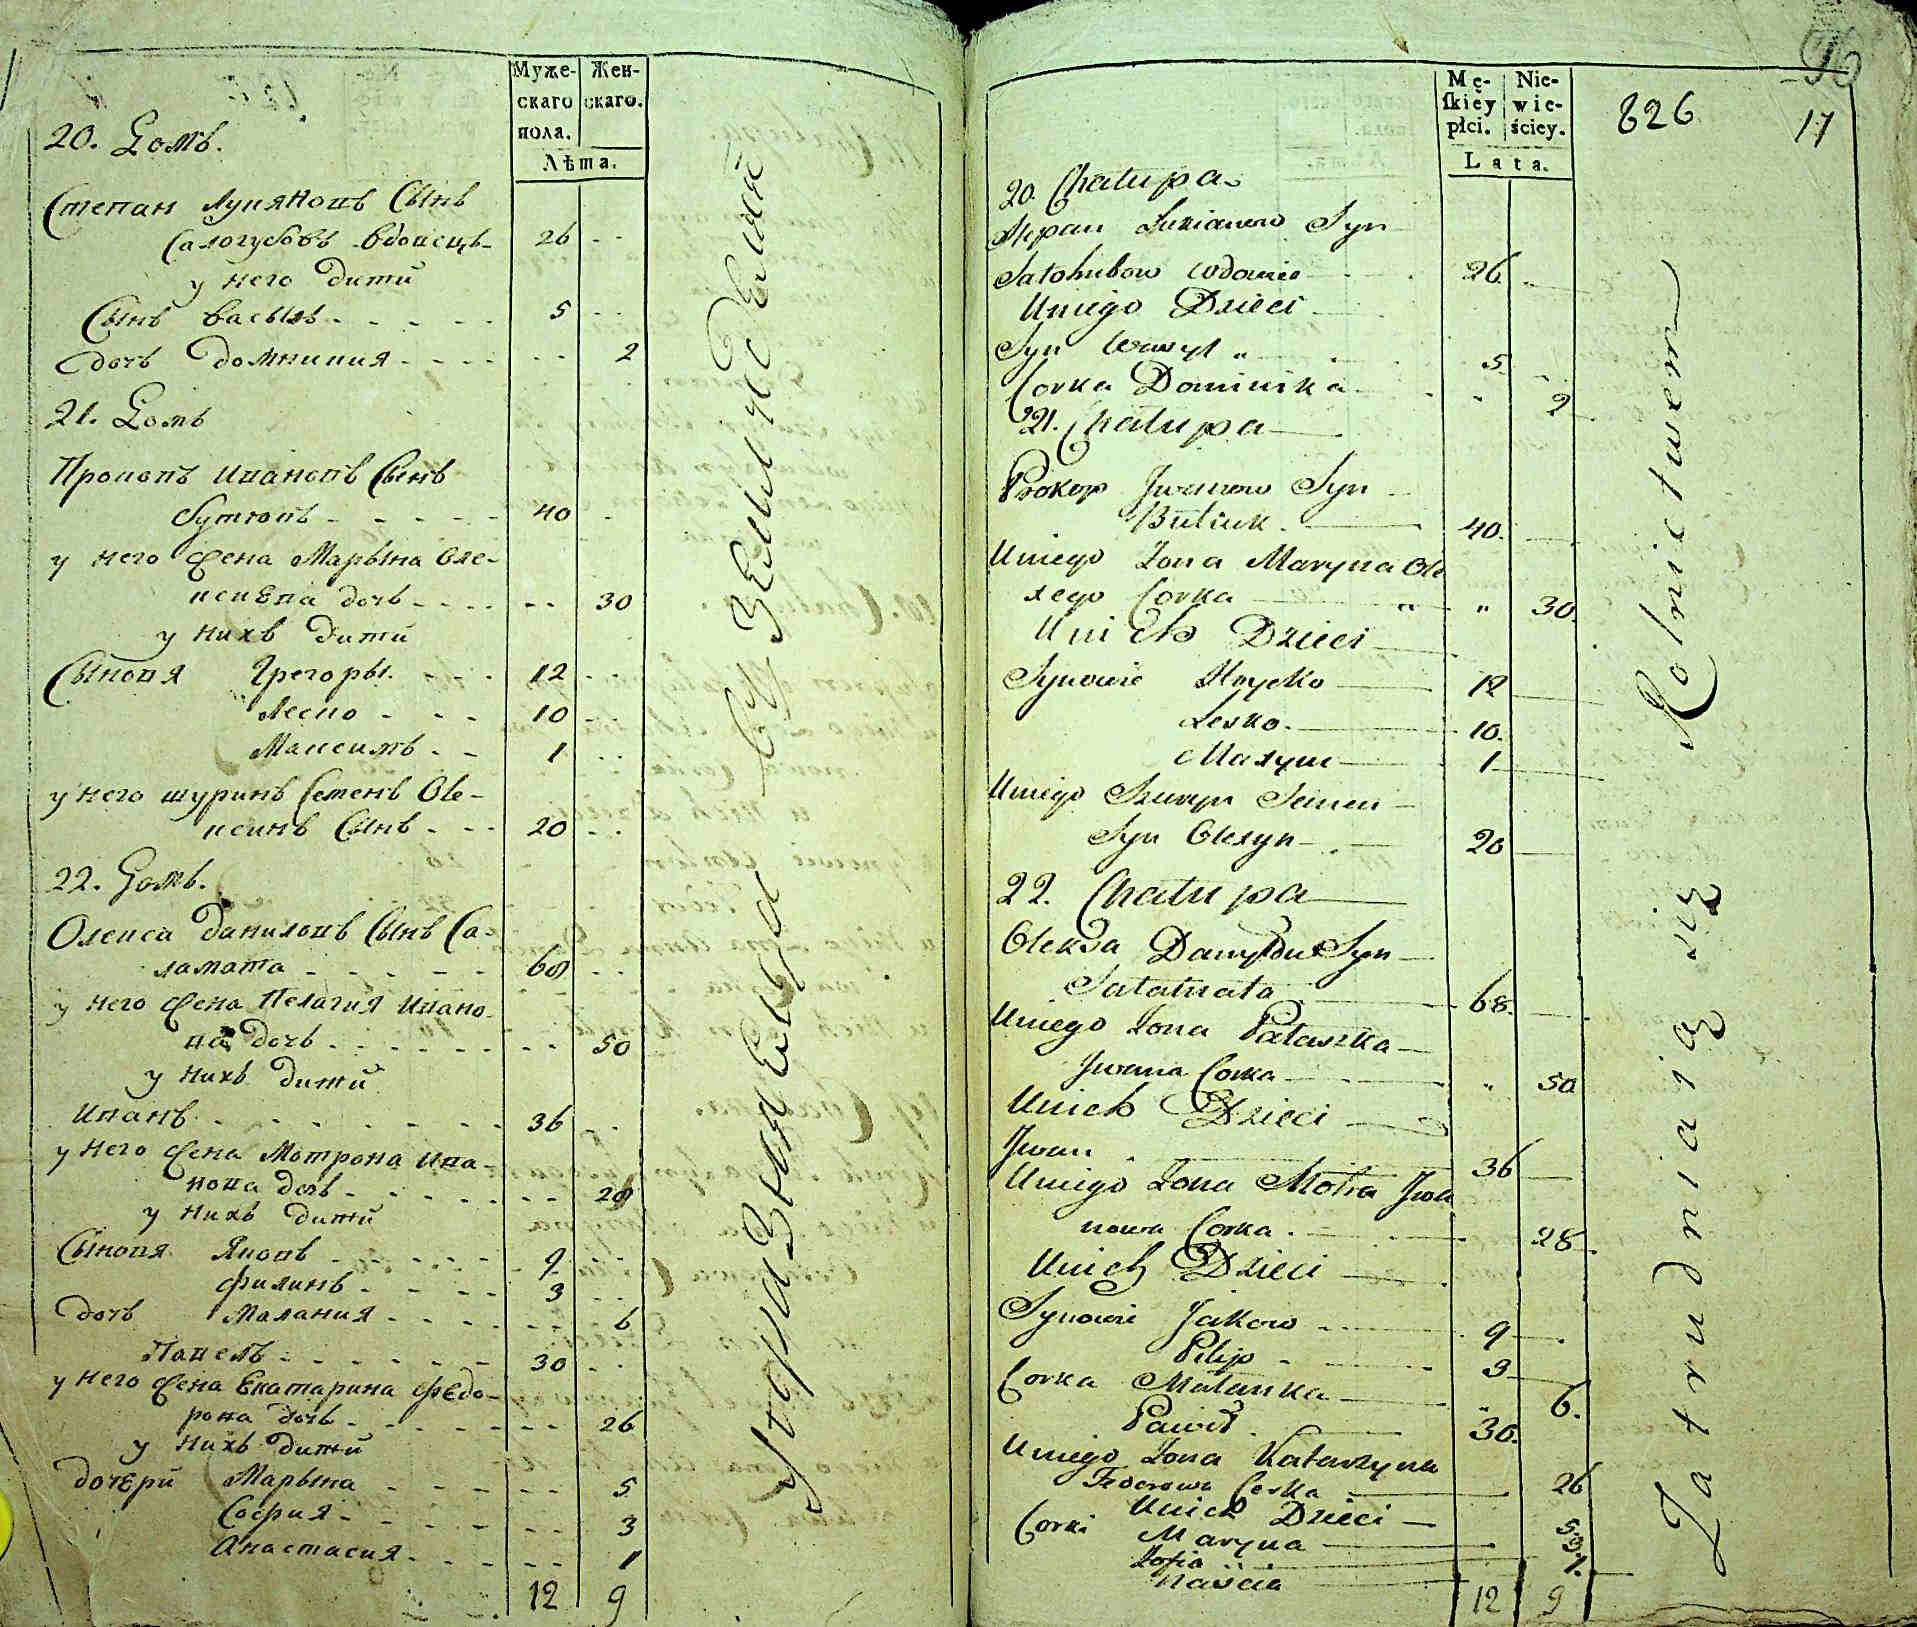 Муже-
скаго
пола.
Жен-
скаго.
Лѣта.
20. Домъ.
Степан Лукяновъ Сынъ
Салогубовъ вдовецъ
26
у него дити
Сынъ Василь
5
дочь Домникия
2
21. Домъ
Прокопъ Ивановъ Сынъ
40
у него жена Марына Оле-
ксиева дочь
30
у нихъ дити
Сыновя Грегоры
12
Леско
10
Максимъ
1
у него шуринъ Семенъ Оле-
ксинъ Сынъ
20
22. Домъ.
Олекса Даниловъ Сынъ Са-
ламата
68
у него жена Пелагия Ивано-
ва дочь
50
у нихъ дити
Иванъ
36
у него жена Мотрона Ива-
нова дочь
28
у нихъ дити
Сыновя Яковъ
9
Филипъ
3
дочь Малания
6
Павелъ
30
у него жена Екатарина Федо-
рова дочь
26
у нихъ дити
дочери Марына
5
София
3
Анастасия
1
12 9
96
Mę-
ſkiey
płci.
Nie-
wie-
ściey.
Lata.
826
17
20. Chałupa
Stepan Łukianow Syn
Sałohubow wdowiec
26
Uniego Dzieci
Syn Wasyl
5
Corka Dominika
2
21. Chałupa
Prokop Jwanow Syn
40.
Uniego Zona Maryna Ole
xego Corka
30.
Unich Dzieci
Synowie Hryćko
12
Lesko.
10.
Maxym
1
Uniego Szuryn Semen
Syn Olexyn
20
22. Chałupa
Olexsa Danyłow Syn
Sałamata
68.
Uniego Zona Pałaszka
Jwana Corka
50
Unich Dzieci
Jwan
36
Uniego Zona Motra Jwa
nowa Corka.
28.
Unich Dzieci
Synowie Jakow
9
Pilip
3
Corka Małanka
6.
Paweł
30.
Uniego Zona Katarzyna
Fedorowa Corka
26
Unich Dzieci
Corki Maryna
5
Zofia
3.
Naścia
1.
12 9
Zatrudniaią się Rolnictwem